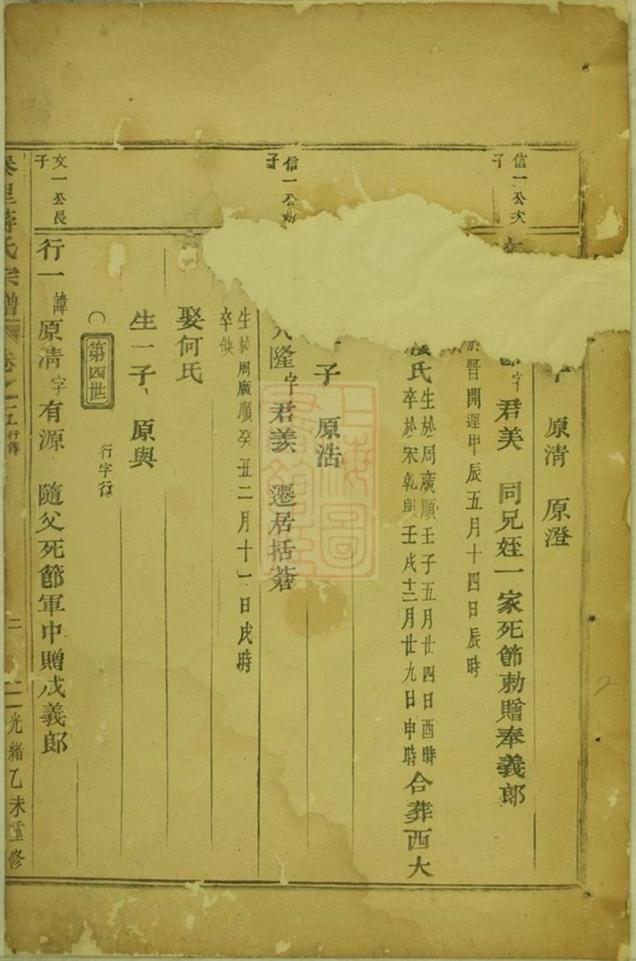 信一公次子
子 原淸 原澄
字君美 同兄姪一家死節勅贈奉義郎
晋開運甲辰五月十四日辰時
氏
生於周廣順壬子五月廿四日酉時
卒於宋乾興壬戌十二月廿九日申時
合葬西大
子 原浩
信一公
子
隆字君羨 遷居括蒼
生於周廣順癸丑二月十一日戌時
卒缺
娶何氏
生一子、原與
第四世
行字行
文一公長子
行一 諱原淸字有源 隨父死節軍中贈成義郎
氏宗譜 卷之五行傳 二 光緒乙未重修